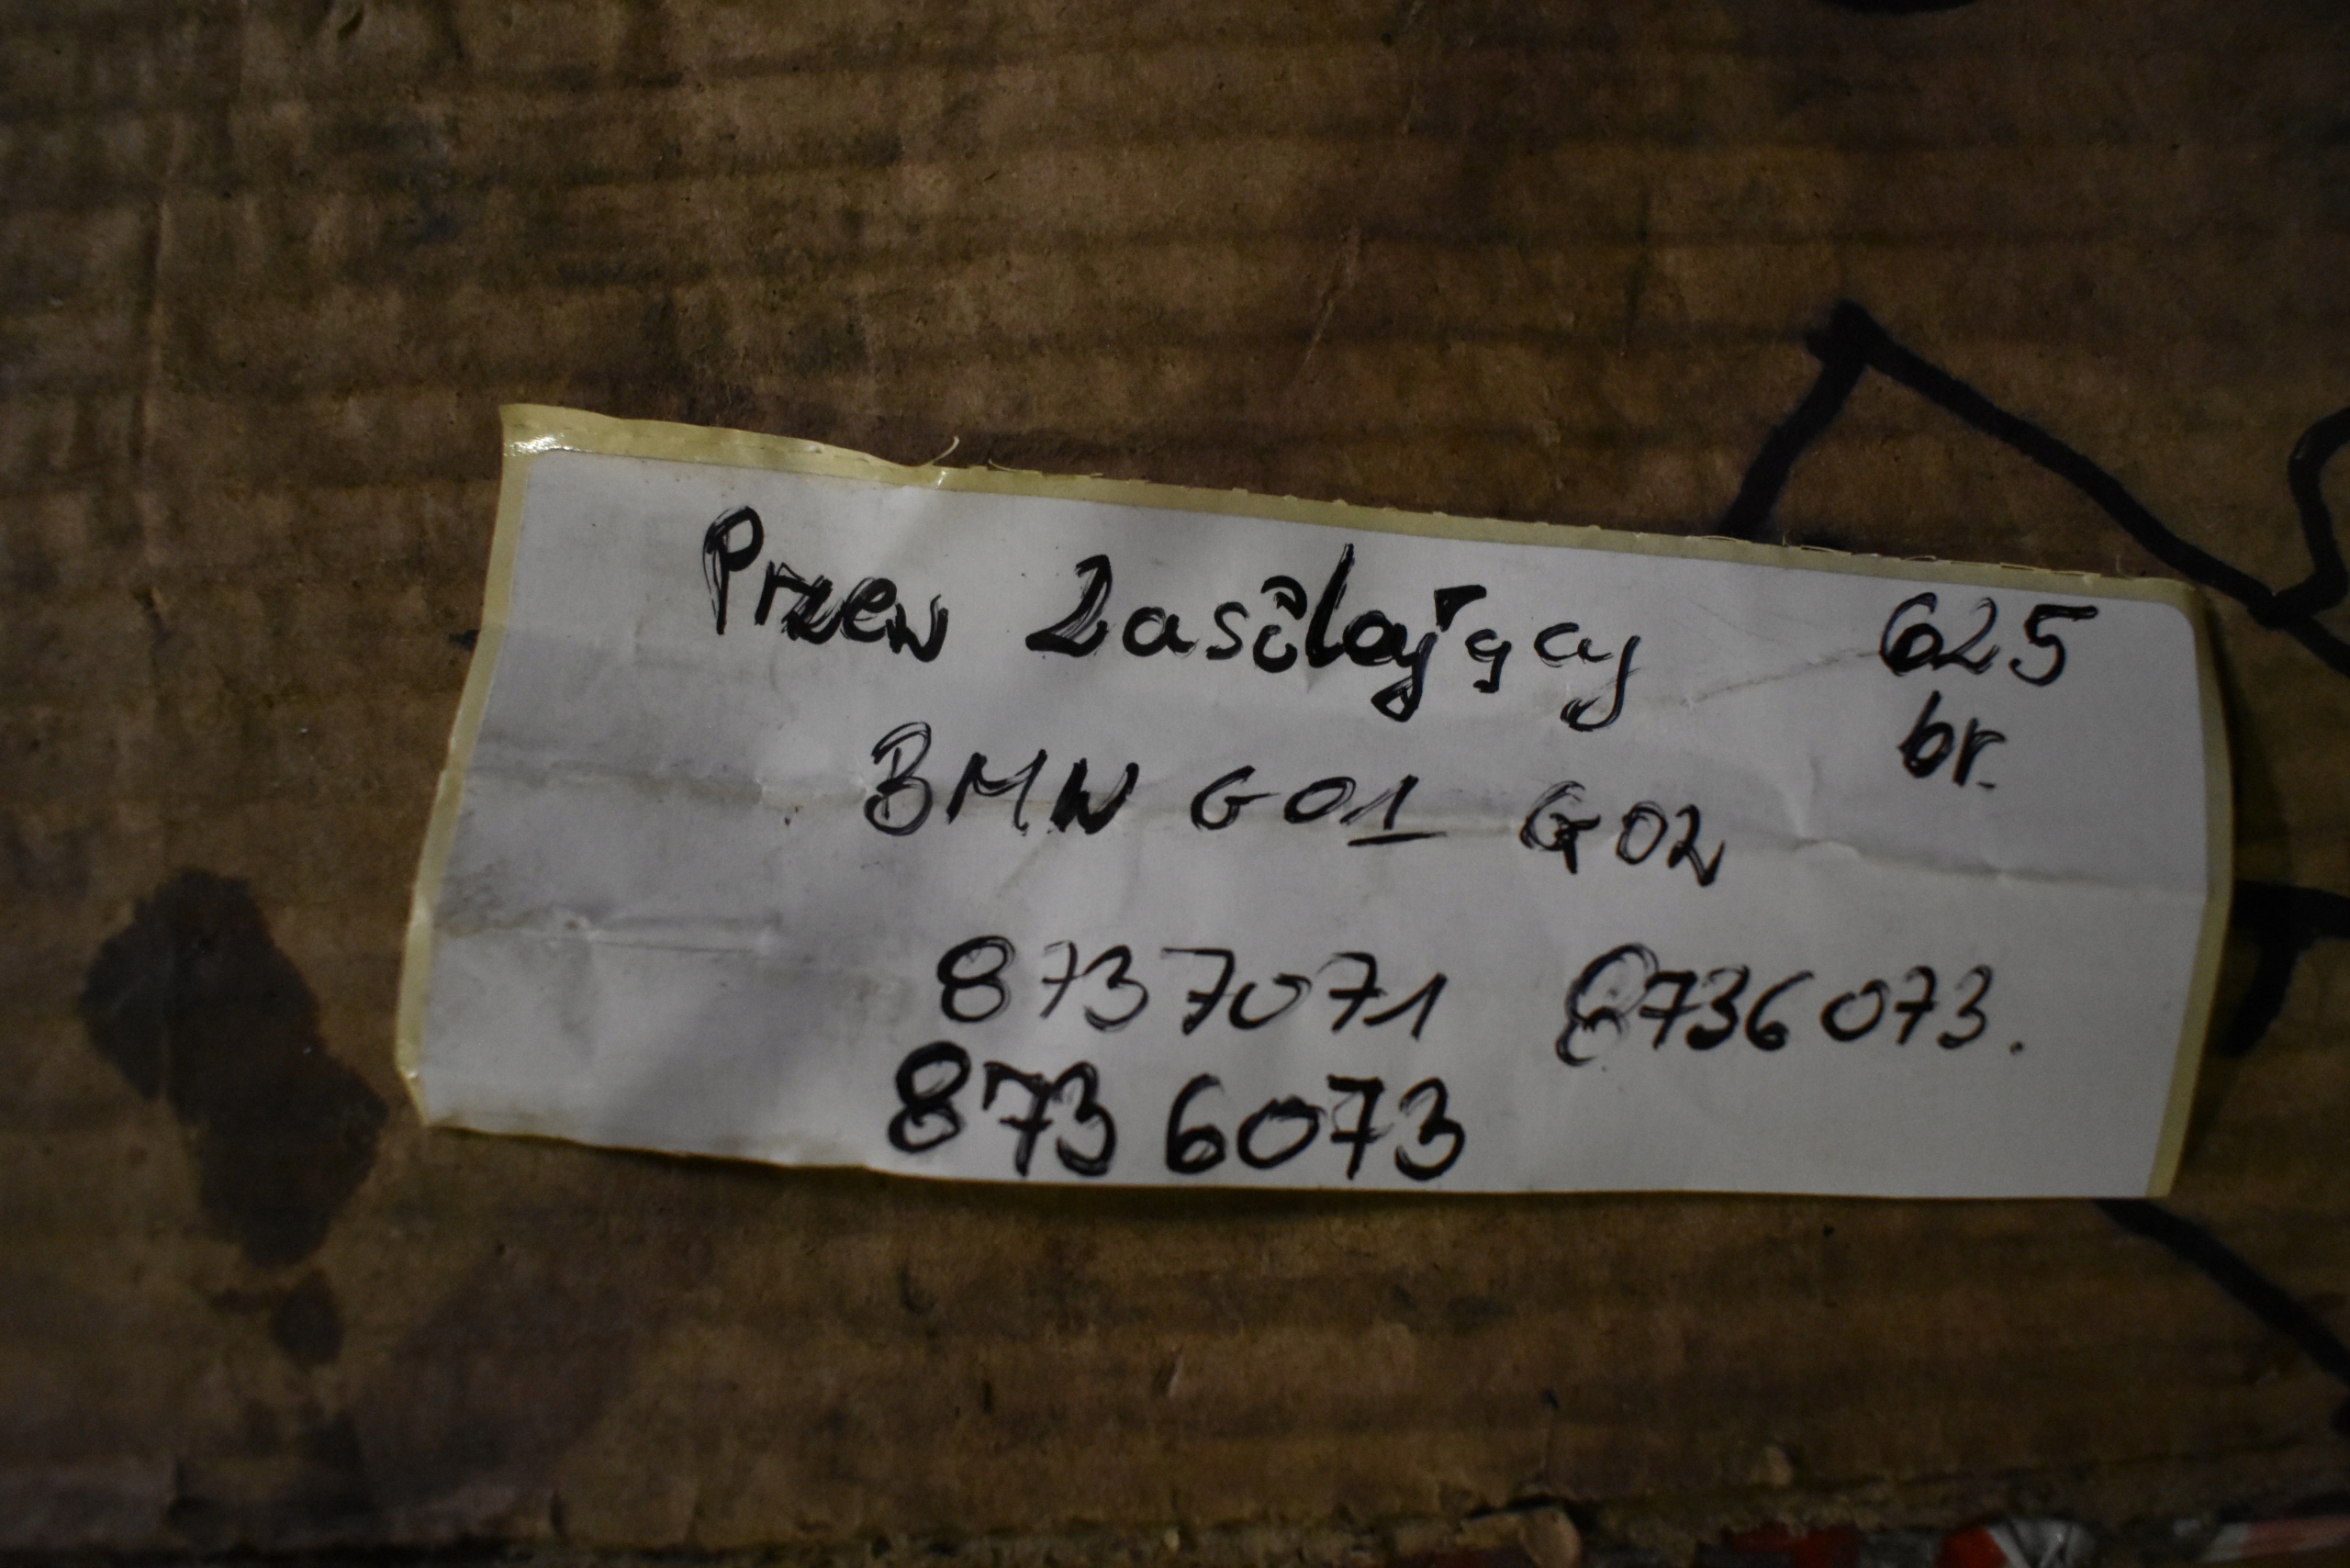 Przew Zasilający 625
br.
BMW G01 G02
8737071 8736073.
8736073